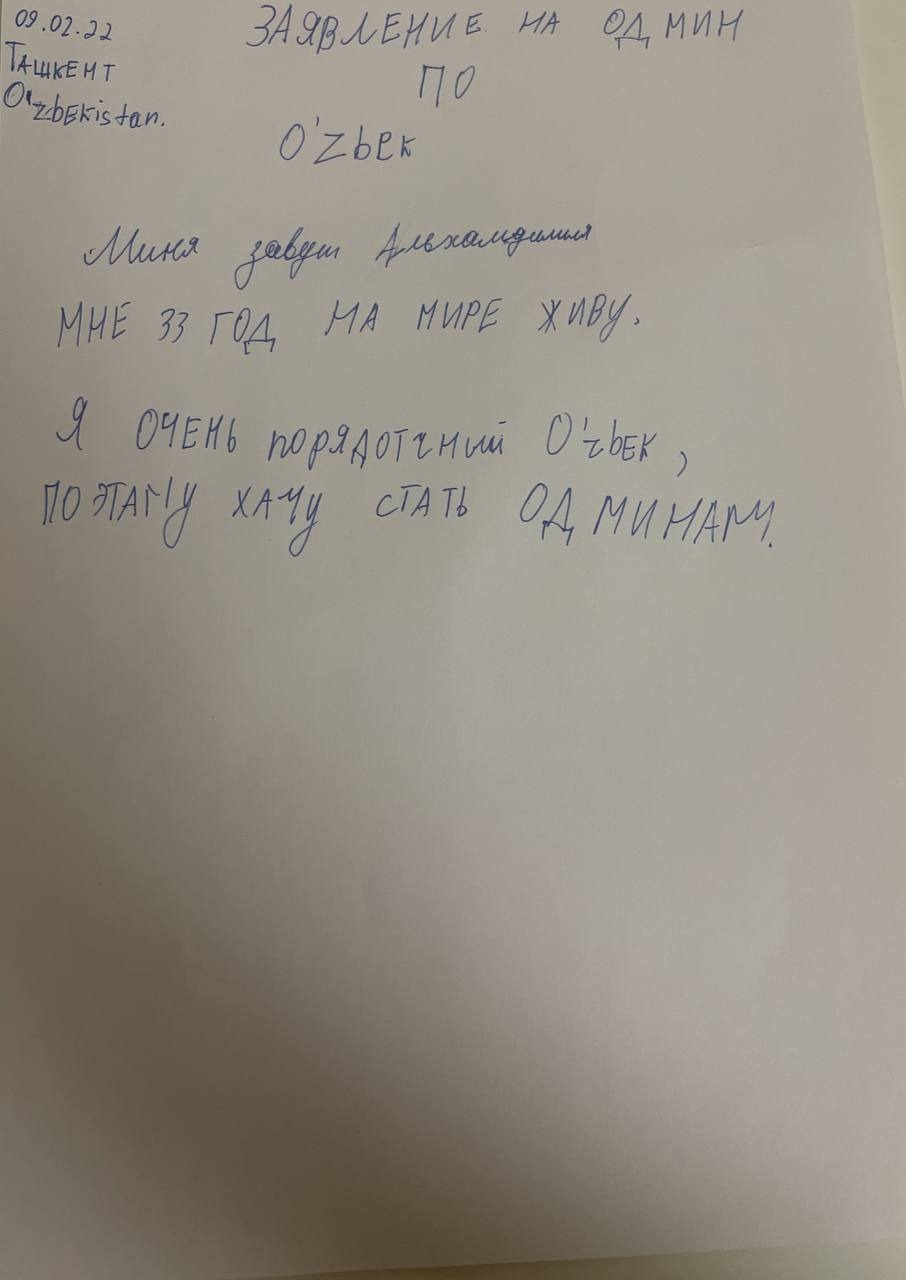 09.02.22
Ташкент
O'zbekistan.
ЗАЯВЛЕНИЕ НА ОДМИН
ПО
O'zbek
Миня завут Альхамдилиля
МНЕ 33 ГОД НА МИРЕ ЖИВУ.
Я ОЧЕНЬ ПОРЯДОТЧНИЙ O'zbEK,
ПОЭТАМУ ХАЧУ СТАТЬ ОДМИНАМ.